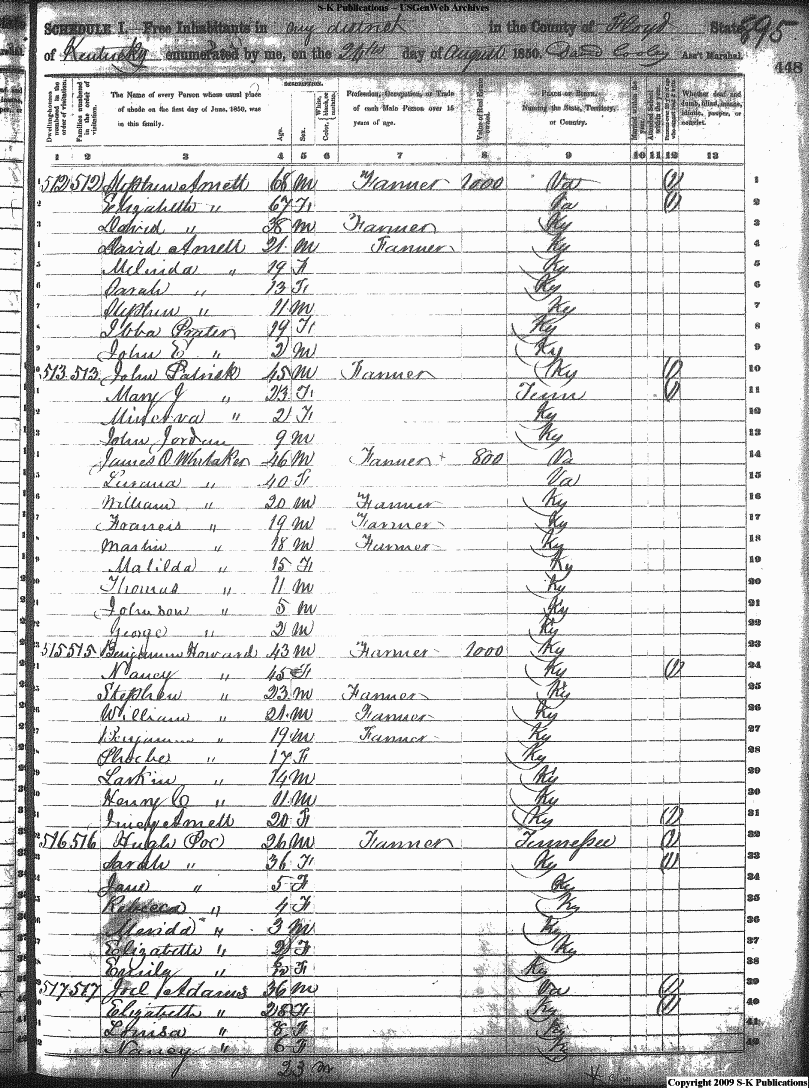 S-K Publications -- USGenWeb Archives
895
SCHEDULE I. Free Inhabitants in any district in the County of Floyd State
of Kentucky enumerated by me, on the 24th day of August 1850. David Cooley Ass't Marshal.
448
Dwelling-houses numbered in the order of visitation.
Families numbered in the order of visitation.
The Name of every Person whose usual place of abode on the first day of June, 1850, was in this family.
DESCRIPTION.
Age.
Sex.
Color, White, black, or mulatto.
Profession, Occupation, or Trade of each Male Person over 15 years of age.
Value of Real Estate owned.
PLACE OF BIRTH. Naming the State, Territory, or Country.
Whether deaf and dumb, blind, insane, idiotic, pauper, or convict.
1 2 3 4 5 6 7 8 9 10 11 12 13
1 512 512 Stephen Arnett 68 M Farmer 1000 Va (1) 1
2 Elizabeth " 67 F Va (1) 2
3 David " 38 M Farmer Ky 3
4 David Arnett 21 M Farmer Ky 4
5 Melinda " 19 F Ky 5
6 Sarah " 13 F Ky 6
7 Stephen " 11 M Ky 7
8 Ibba Prater 19 F Ky 8
9 John E " 2 M Ky 9
10 513 513 John Patrick 45 M Farmer Ky (1) 10
11 Mary J " 23 F Tenn (1) 11
12 Minerva " 2 F Ky 12
13 John Jordan 9 M Ky 13
14 James O Whitaker 46 M Farmer 800 Va 14
15 Lurana " 40 F Va 15
16 William " 20 M Farmer Ky 16
17 Francis " 19 M Farmer Ky 17
18 Martin " 18 M Farmer Ky 18
19 Matilda " 15 F Ky 19
20 Thomas " 11 M Ky 20
21 Johnson " 5 M Ky 21
22 George " 2 M Ky 22
23 515 515 Benjamin Howard 43 M Farmer 1000 Ky 23
24 Nancy " 45 F Ky (1) 24
25 Stephen " 23 M Farmer Ky 25
26 William " 21 M Farmer Ky 26
27 Benjamin " 19 M Farmer Ky 27
28 Phoebe " 17 F Ky 28
29 Larkin " 14 M Ky 29
30 Henry C " 11 M Ky 30
31 Arnett 20 F Ky (1) 31
32 516 516 Hugh Poe 26 M Farmer Tennessee (1) 32
33 Sarah " 36 F Ky (1) 33
34 Jane " 5 F Ky 34
35 Rebecca " 4 F Ky 35
36 Merida " 3 M Ky 36
37 Elizabeth " 2 F Ky 37
38 Emily " F Ky 38
39 517 517 Joel Adams 36 M Va (1) 39
40 Elizabeth " 28 F Ky (1) 40
41 Louisa " 8 F Ky 41
42 Nancy " 6 F Ky 42
23 M
Copyright 2009 S-K Publications